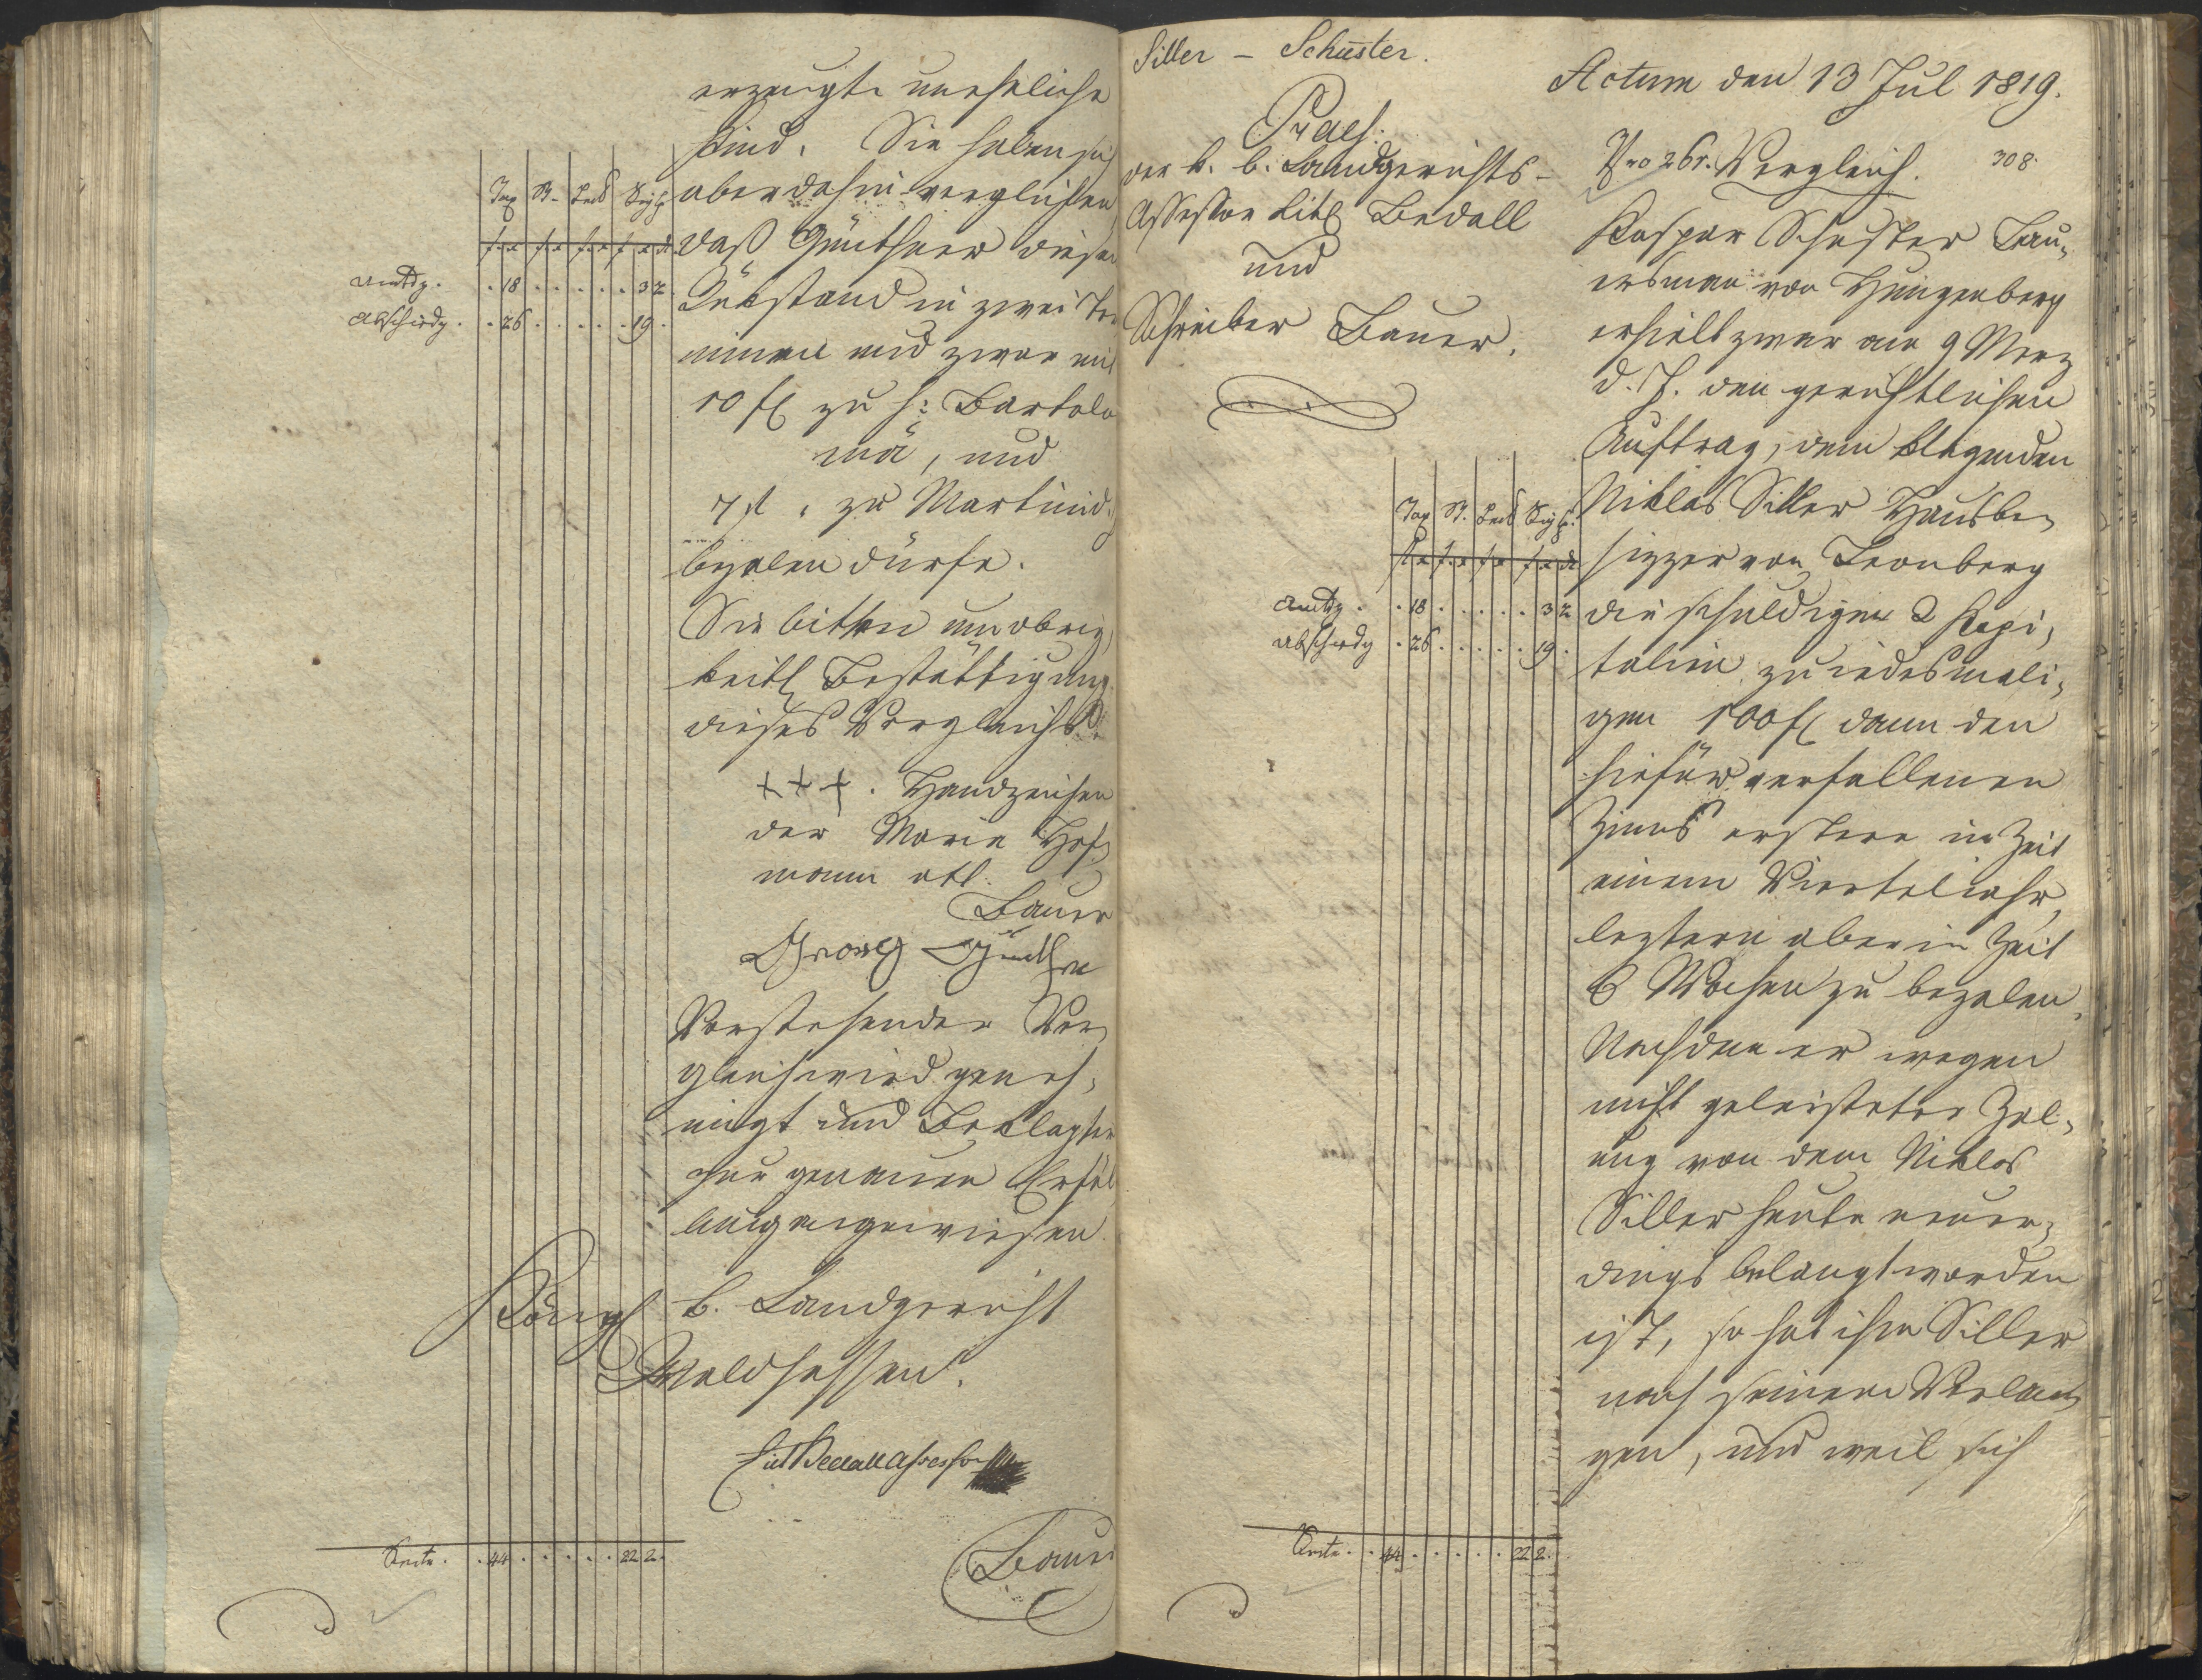 erzeugte uneheliche
Kind. Sie haben sich
aber dahin verglichen
daß Günthner diesen
Rükstand in zwei Ter
minen und zwar mit
10 fl zu h: Bartolo
mä, und
7 fl zu Martini d.
bezalen dürfe.
Sie bitten um obrig
keitl Bestättigung
dieses Vergleichs.
+++. Handzeichen
der Maria Hof
mann
Bauer
Georg
Vorstehender Ver
gleich wird geneh,
migt und Beklagter
zur genauen Erfül
lung angewiesen.
Königl b. Landgericht
Waldsassen.
Lict Bedall Assessor
Bauer
Tax St.
Amtsg. . 18 . . . . . 3 2
Abschiedg. . 26 . . . . . 19 .
. 44 . . . . . 22 2.
Siller – Schuster.
Praes.
der k. b. Landgerichts-
Assessor Litl Bedall
und
Schreiber Bauer.
Tax St.
Amtsg. . 18 . . . . . 3 2
Abschiedg . 26 . . . . . 19 .
. 44 . . . . . 22 2.
Actum den 13 Jul 1819.
Nro 261. Vergleich. 308.
Kaspar Schuster Bau,
ersman von Hungenberg
erhielt zwar am 9 Merz
d. J. den gerichtlichen
Auftrag, dem klagenden
Niklas Siller Hausbe,
sizzer von Leonberg
die schuldigen 2 Kapi,
talien zu iedesmali,
gen 100 fl dann den
hiefür verfallenen
Zinns erstere in Zeit
einem Vierteliahr
leztern aber in Zeit
6 Wochen zu bezalen.
Nachdem er wegen
nicht geleisteter Zal,
ung von dem Niklas
Siller heute neuer,
dings belangt worden
ist, so hat ihm Siller
nach seinem Verlan
gen, und weil sich